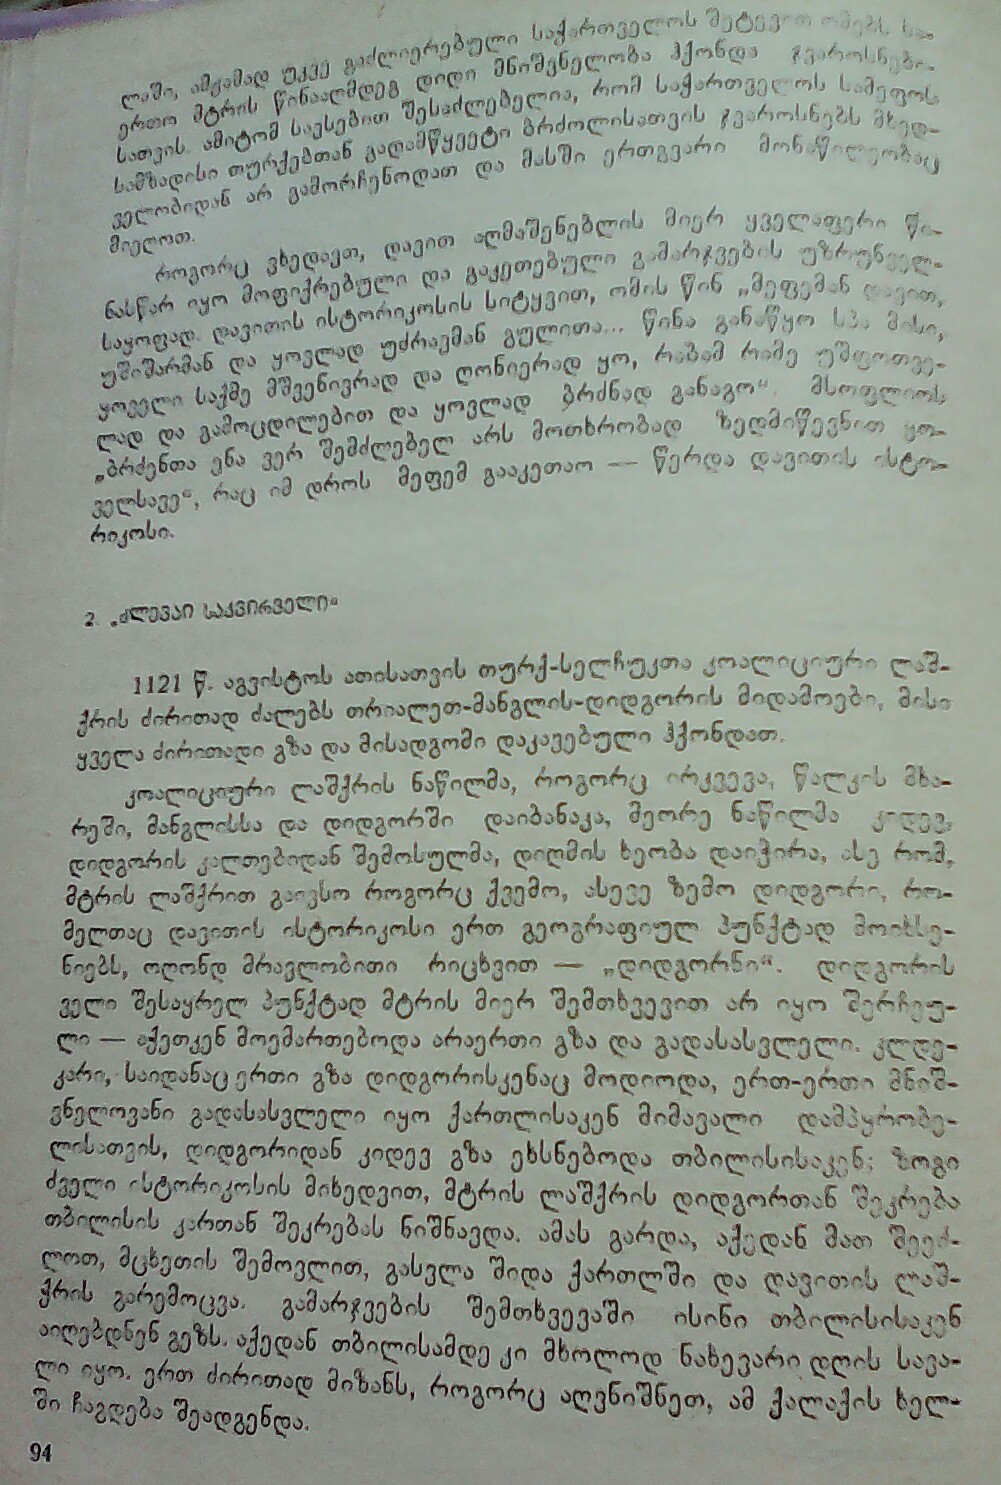 ლაში, ამჟამად უკვე გაძლიერებული საქართველოს შეტევით ომებს სა-
ერთო მტრის წინააღმდეგ დიდი მნიშვნელობა ჰქონდა ჯვაროსნები-
სათვის. ამიტომ სავსებით შესაძლებელია, რომ საქართველოს სამეფოს
სამზადისი თურქებთან გადამწყვეტი ბრძოლისათვის ჯვაროსნებს მხედ-
ველობიდან არ გამორჩენოდათ და მასში ერთგვარი მონაწილეობაც
მიეღოთ.
როგორც ვხედავთ, დავით აღმაშენებლის მიერ ყველაფერი წი-
ნასწარ იყო მოფიქრებული და გაკეთებული გამარჯვების უზრუნველ-
საყოფად. დავითის ისტორიკოსის სიტყვით, ომის წინ „მეფემან დავით,
უშიშარმან და ყოვლად უძრავმან გულითა... წინა განაწყო სპა მისი,
ყოველი საქმე მშვენივრად და ღონიერად ყო, რაბამ რამე უშფოთვე-
ლად და გამოცდილებით და ყოვლად ბრძნად განაგო“. მსოფლიოს
„ბრძენთა ენა ვერ შემძლებელ არს მოთხრობად ზედმიწევნით ყო-
ველსავე“, რაც იმ დროს მეფემ გააკეთაო — წერდა დავითის ისტო-
რიკოსი.
2. „ძლევაი საკვირველი“
1121 წ. აგვისტოს ათისათვის თურქ-სელჩუკთა კოალიციური ლაშ-
ქრის ძირითად ძალებს თრიალეთ-მანგლის-დიდგორის მიდამოები, მისი
ყველა ძირითადი გზა და მისადგომი დაკავებული ჰქონდათ.
კოალიციური ლაშქრის ნაწილმა, როგორც ირკვევა, წალკის მხა-
რეში, მანგლისსა და დიდგორში დაიბანაკა, მეორე ნაწილმა კიდევ,
დიდგორის კალთებიდან შემოსულმა, დიღმის ხეობა დაიჭირა, ასე რომ,
მტრის ლაშქრით გაივსო როგორც ქვემო, ასევე ზემო დიდგორი, რო-
მელთაც დავითის ისტორიკოსი ერთ გეოგრაფიულ პუნქტად მოიხსე-
ნიებს, ოღონდ მრავლობითი რიცხვით — „დიდგორნი“. დიდგორის
ველი შესაყრელ პუნქტად მტრის მიერ შემთხვევით არ იყო შერჩეუ-
ლი — აქეთკენ მოემართებოდა არაერთი გზა და გადასასვლელი. კლდე-
კარი, საიდანაც ერთი გზა დიდგორისკენაც მოდიოდა, ერთ-ერთი მნიშ-
ვნელოვანი გადასასვლელი იყო ქართლისაკენ მიმავალი დამპყრობე-
ლისათვის, დიდგორიდან კიდევ გზა ეხსნებოდა თბილისისაკენ; ზოგი
ძველი ისტორიკოსის მიხედვით, მტრის ლაშქრის დიდგორთან შეკრება
თბილისის კართან შეკრებას ნიშნავდა. ამას გარდა, აქედან მათ შეეძ-
ლოთ, მცხეთის შემოვლით, გასვლა შიდა ქართლში და დავითის ლაშ-
ქრის გარემოცვა. გამარჯვების შემთხვევაში ისინი თბილისისაკენ
აიღებდნენ გეზს. აქედან თბილისამდე კი მხოლოდ ნახევარი დღის სავა-
ლი იყო. ერთ ძირითად მიზანს, როგორც აღვნიშნეთ, ამ ქალაქის ხელ-
ში ჩაგდება შეადგენდა.
94